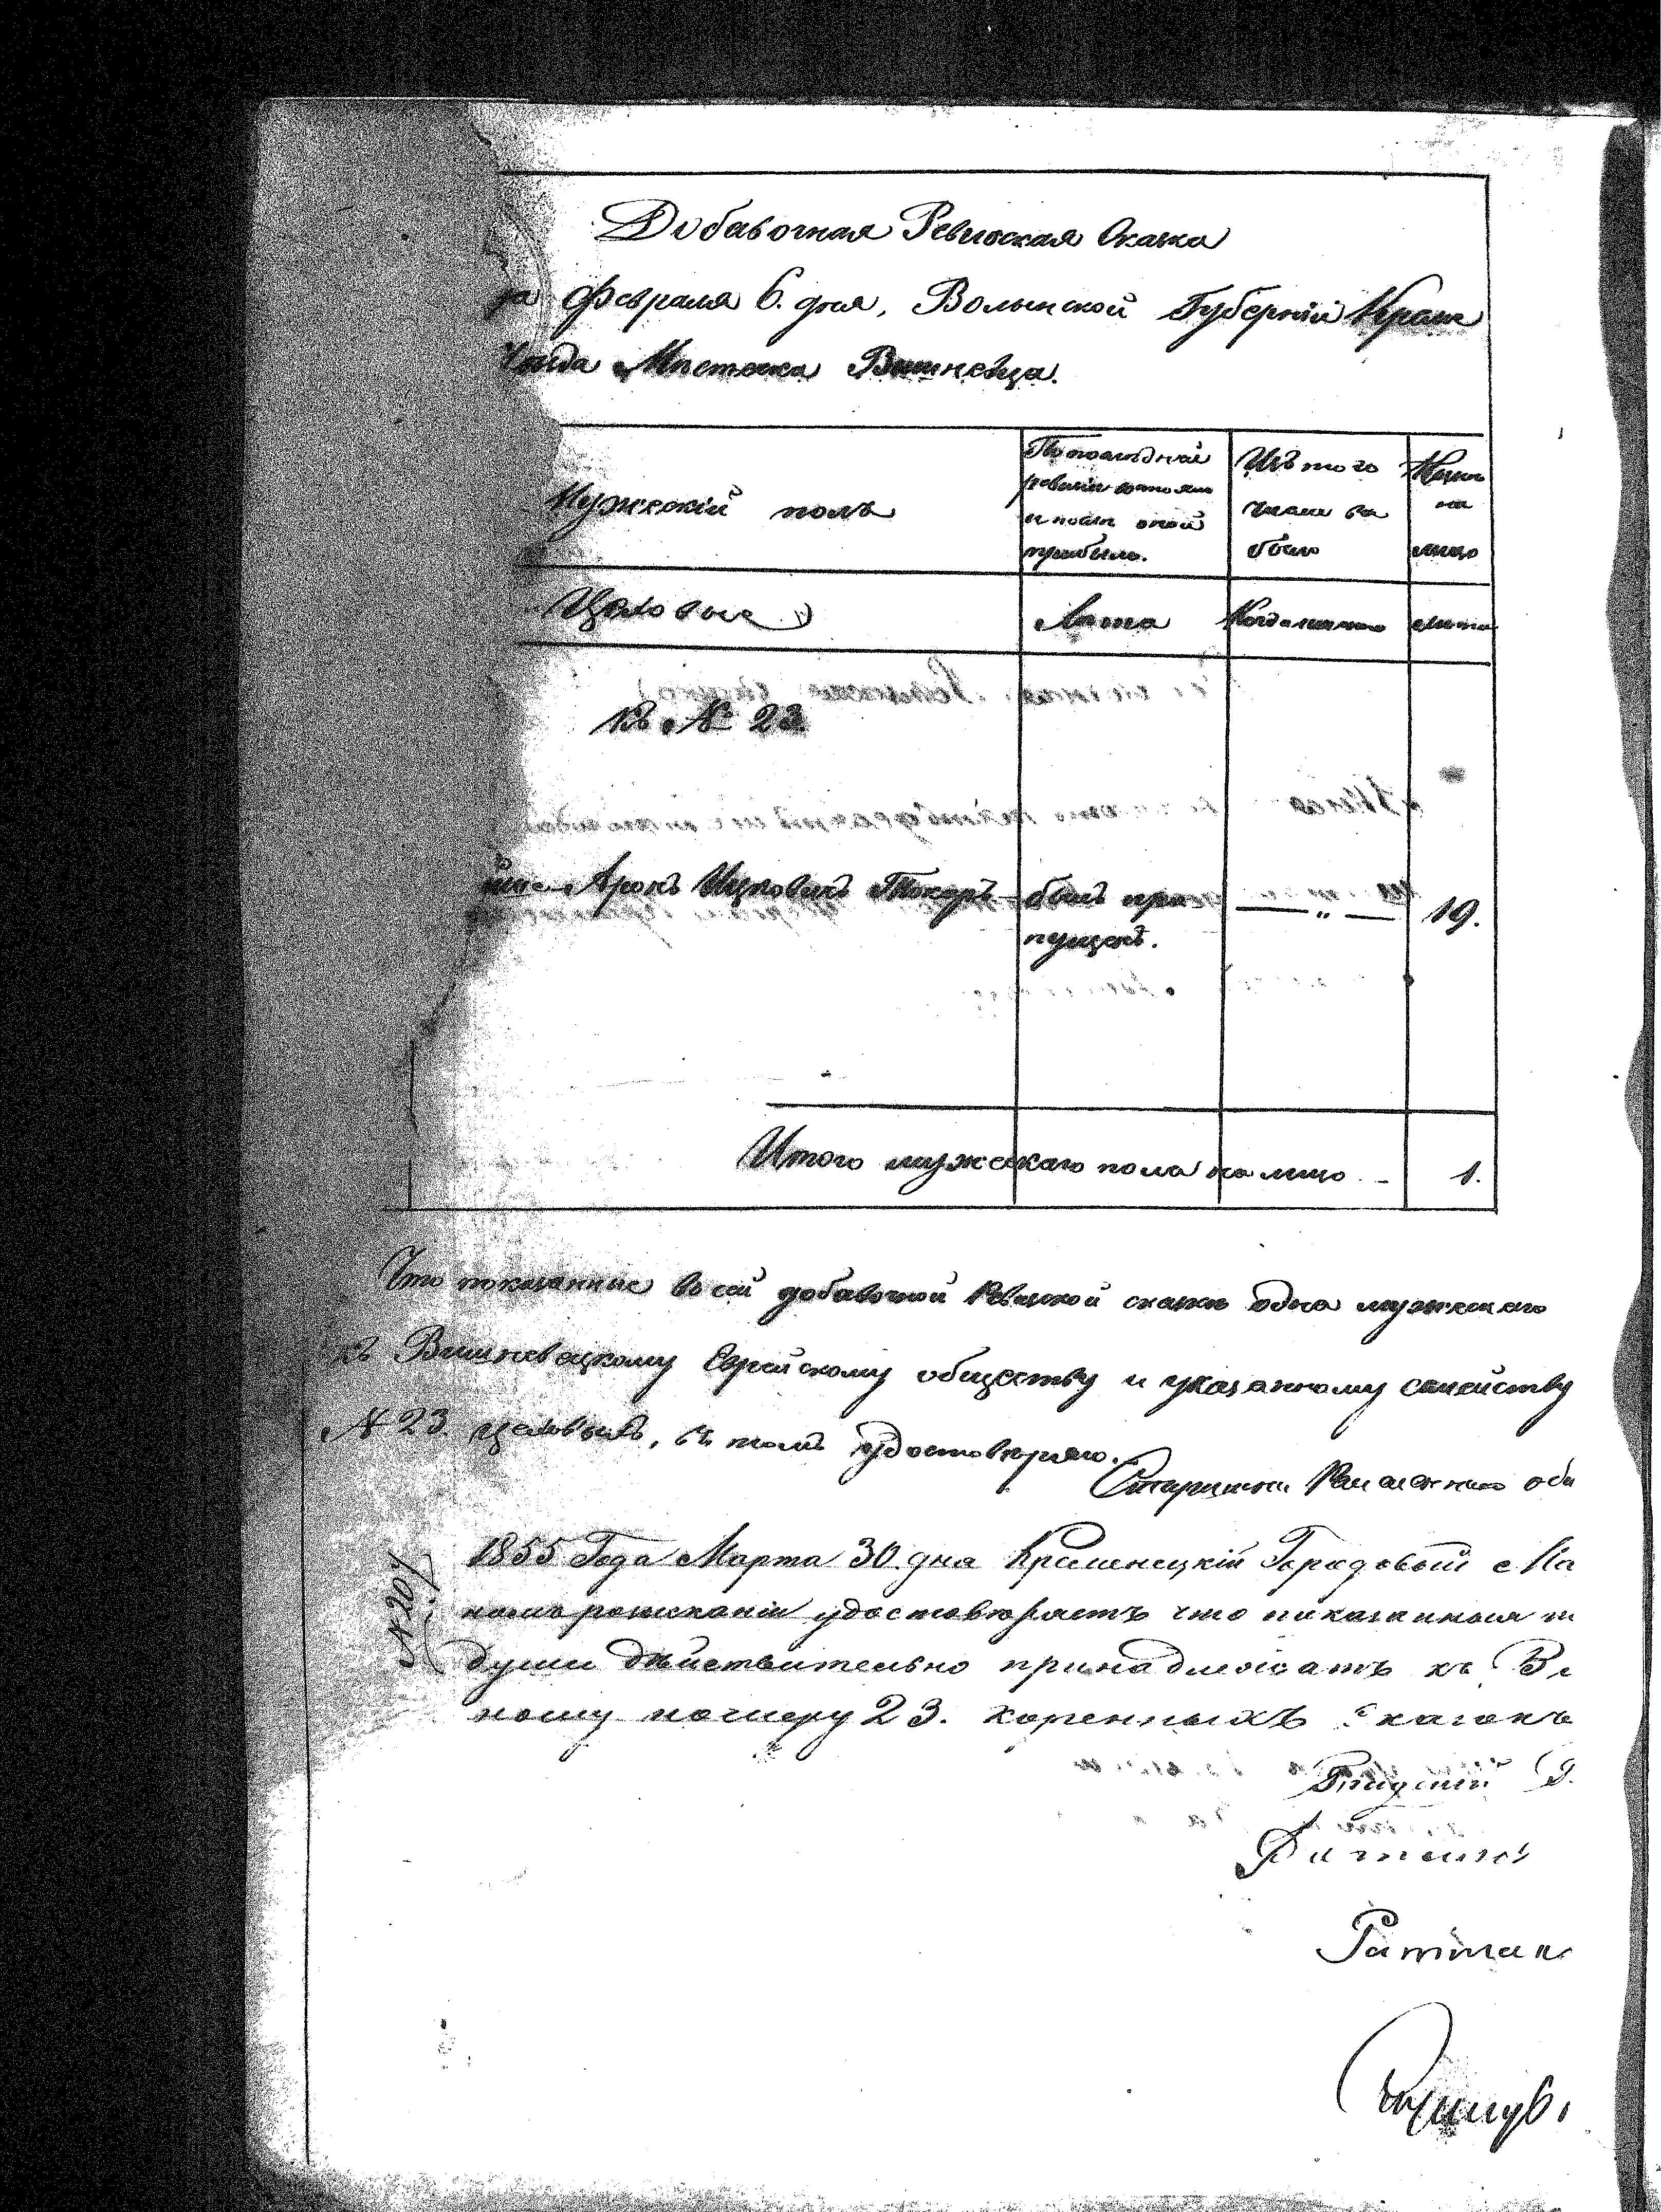 Добавочная Ревизская Сказка
да Февраля 6. дня, Волынской Губерніи Креме
Уезда Местечка Вишневца.
Мужескій полъ
По последней
ревизіи состояло
и после оной
прибыло.
Изъ того
числа вы
было
Ныне
на
лицо
Цеховые
Лета
Когда именно
лета
Къ № 23
Аронъ Ицковичъ Токаръ
былъ про
пущенъ.
— " —
19.
Итого мужескаго пола на лицо -
1.
Что показанные въ сей добавочной Ревизской сказке одна мужескаго
къ Вишневецкому Еврейскому обществу и указанному семейству
№ 23 цеховыхъ, въ томъ удостоверяю.
Старшина Ремесленнаго
№ 201
1855 Года Марта 30. дня Кременецкій Городовый Ма
удостоверяетъ что показанная
души действительно принадлежатъ къ Ви
ному номеру 23. коренныхъ сказокъ
Ратман